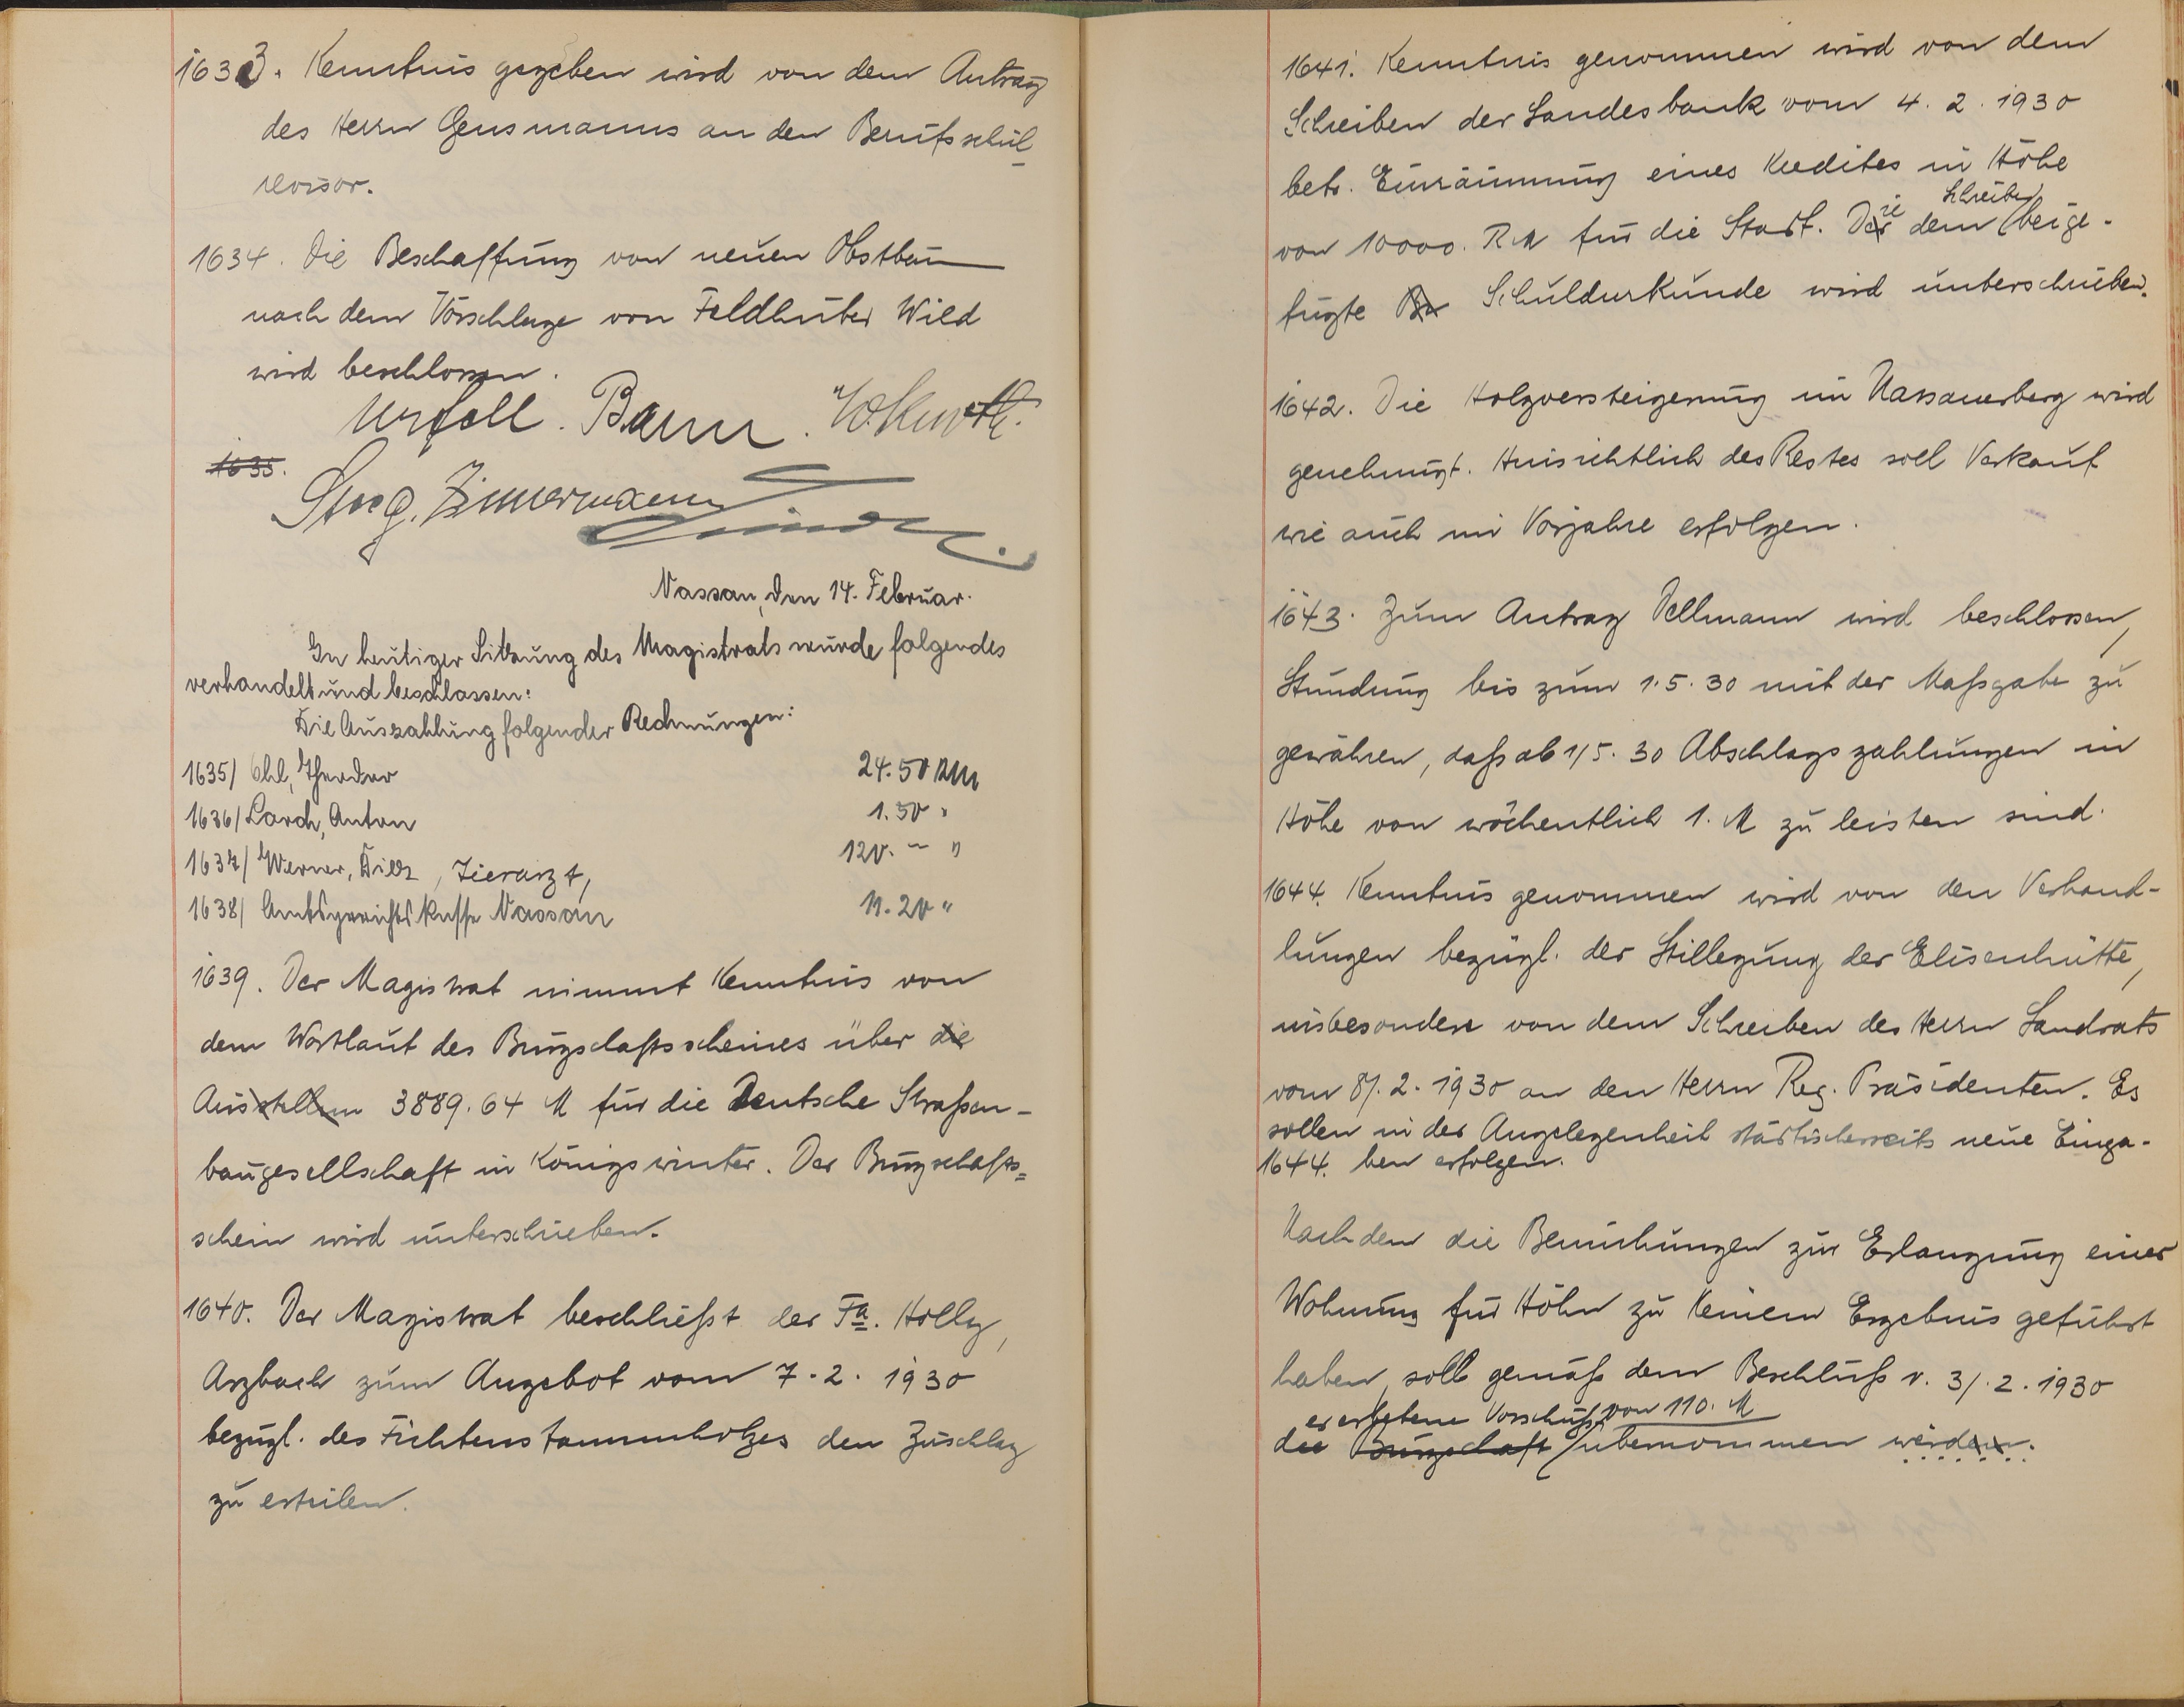 1633. Kenntnis gegeben wird von dem Antrag
des Herrn Gensmanns an den Berufsschul-
revisor.
1634. Die Beschaffung von neuen Obstbäum
nach dem Vorschlage von Feldhüter Wild
wird beschlossen.
Unfell. Baum.
1635.
Zimmermann
Nassau, den 14. Februar.
In heutiger Sitzung des Magistrats wurde folgendes
verhandelt und beschlossen:
Die Auszahlung folgender Rechnungen:
1635/ Ohl, Theodor 24.50 RM
1636/ Lorch, Anton 1.50 "
1637/ Werner, Diez, Tierarzt, 120.- "
1638/ Amtsgerichtskasse Nassau 11.20 "
1639. Der Magistrat nimmt Kenntnis von
dem Wortlaut des Burgschaftsscheines über die
Ausstellun 3889.64 M für die Deutsche Straßen-
baugesellschaft in Königswinter. Der Burgschafts=
schein wird unterschrieben.
1640. Der Magistrat beschließt der Fa. Holly,
Arzbach zum Angebot vom 7.2.1930
bezügl. des Fichtenstammholzes den Zuschlag
zu erteilen.
1641. Kenntnis genommen wird von dem
Schreiben der Landesbank vom 4.2.1930
betr. Einräumung eines Kredites in Höhe
von 10000. RM für die Stadt. Die dem Schreiben beige-
fügte Schuldurkunde wird unterschrieben.
1642. Die Holzversteigerung im Nassauerberg wird
genehmigt. Hinsichtlich des Restes soll Verkauf
wie auch im Vorjahre erfolgen.
1643. Zum Antrag Dellmann wird beschlossen,
Stundung bis zum 1.5.30 mit der Maßgabe zu
gewähren, daß ab 1/5.30 Abschlagszahlungen in
Höhe von wöchentlich 1. M zu leisten sind.
1644. Kenntnis genommen wird von den Verhand-
lungen bezügl. der Stillegung der Elisenhütte,
insbesondere von dem Schreiben des Herrn Landrats
vom 8/.2.1930 an den Herrn Reg. Präsidenten. Es
sollen in der Angelegenheit städtischerseits neue Einga-
1644. ben erfolgen.
Nachdem die Bemühungen zur Erlangung einer
Wohnung für Höhn zu keinem Ergebnis geführt
haben, soll gemäß dem Beschluß v. 3/.2.1930
er erbetene Vorschuß von 110. M
die Burgschaft übernommen werden.